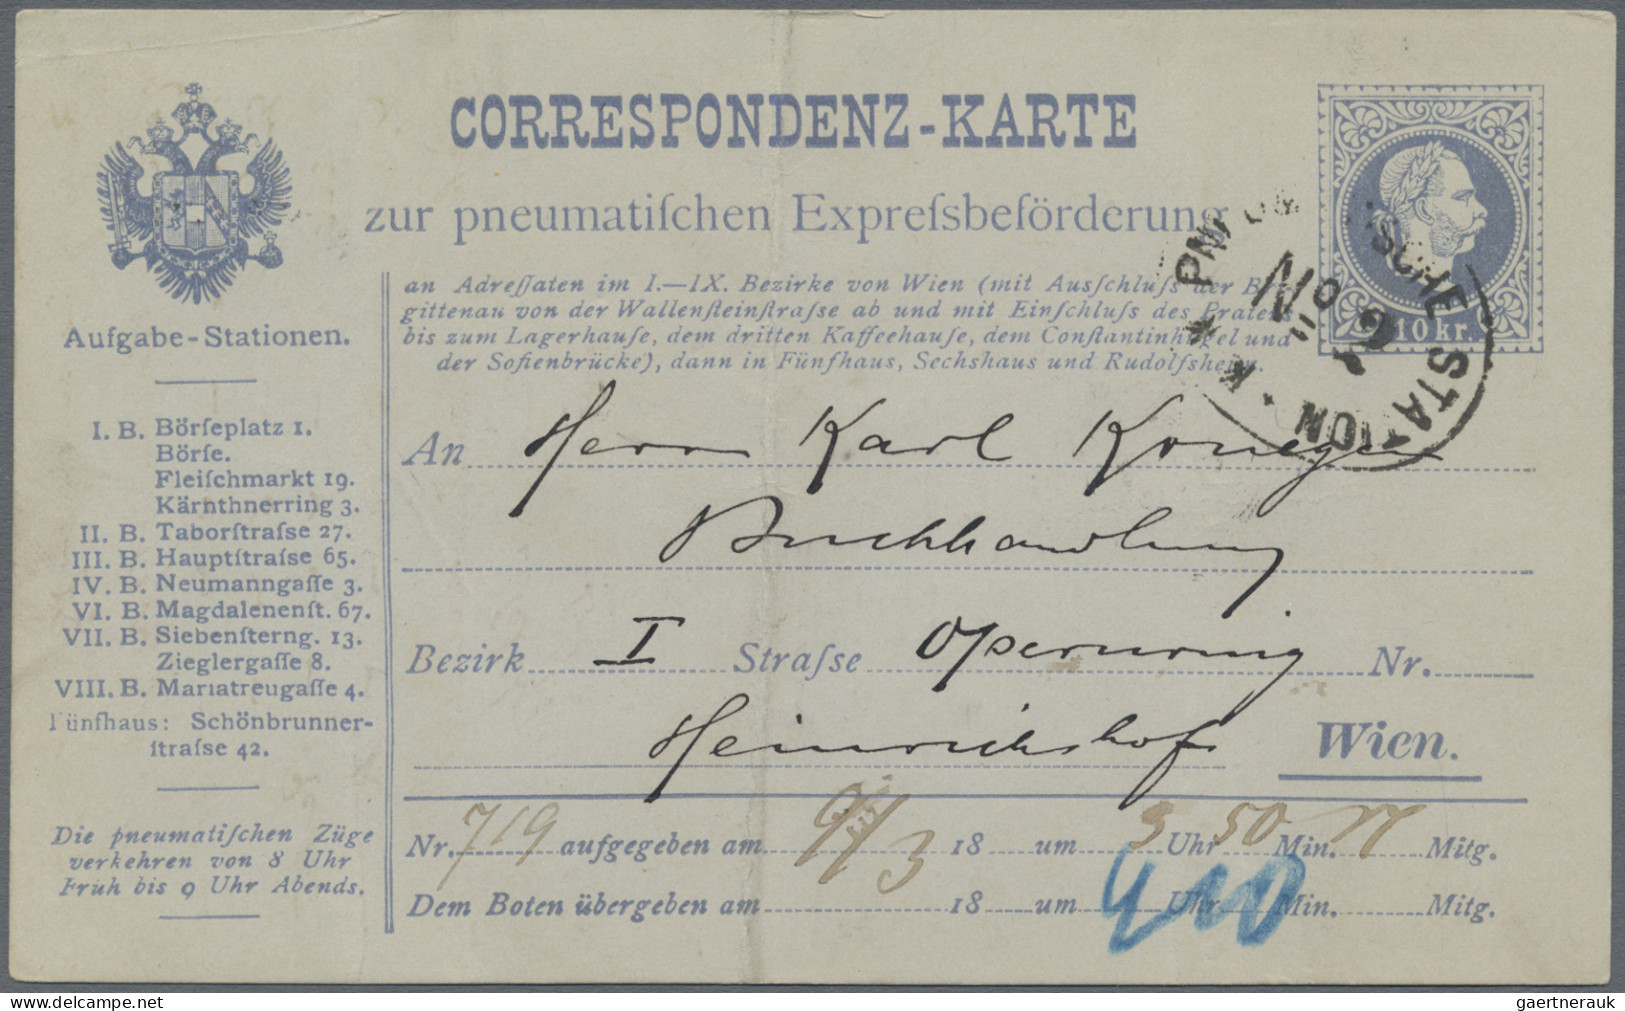 CORRESPONDENZ-KARTE
zur pneumatiſchen Expreſsbeförderung
an Adreſſaten im I.—IX. Bezirke von Wien (mit Ausſchluſs der
gittenau von der Wallenſteinſtraſse ab und mit Einſchluſs des Praters
bis zum Lagerhauſe, dem dritten Kaffeehauſe, dem Conſtantinhügel und
der Sofienbrücke), dann in Fünfhaus, Sechshaus und Rudolfsheim.
10 kr.
PNEUMATISCHE STATION
No
* K. *
Aufgabe-Stationen.
I. B. Börſeplatz 1.
Börſe.
Fleiſchmarkt 19.
Kärnthnerring 3.
II. B. Taborſtraſse 27.
III. B. Hauptſtraſse 65.
IV. B. Neumanngaſſe 3.
VI. B. Magdalenenſt. 67.
VII. B. Siebenſterng. 13.
Zieglergaſſe 8.
VIII. B. Mariatreugaſſe 4.
Fünfhaus: Schönbrunner-
ſtraſse 42.
Die pneumatiſchen Züge
verkehren von 8 Uhr
Früh bis 9 Uhr Abends.
An Herrn Karl Konegen
Buchhandlung
Bezirk I Straſse Opernring Nr.
Heinrichshof Wien.
Nr. 719 aufgegeben am 9/3 18 um 3 Uhr 50 Min. N Mitg.
Dem Boten übergeben am 18 um 4 Uhr 10 Min. Mitg.
gaertnerauk
www.delcampe.net